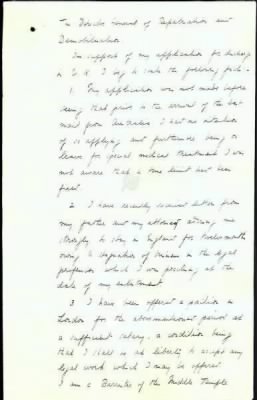 The Director General of Repatriation and
Demobilisation
In support of my application for discharge
in U.K. I beg to state the following facts.
1. My application was not made before
being that prior to the arrival of the last
mail from Australia I had no intention
of so applying and furthermore being on
leave for special medical treatment I was
not aware that a time limit had been
fixed.
2. I have recently received letters from
my father and my attorney advising me
strongly to stay in England for twelve months
owing to stagnation of business in the legal
profession which I was practising at the
date of my enlistment.
3. I have been offered a position in
London for the abovementioned period at
a sufficient salary, a condition being
that I shall be at liberty to accept any
legal work which I may be offered
I am a Barrister of the Middle Temple